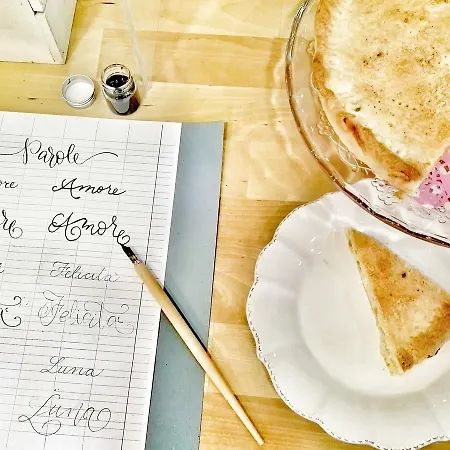 Parole
Amore
Amore
Felicità
Felicità
Luna
Luna